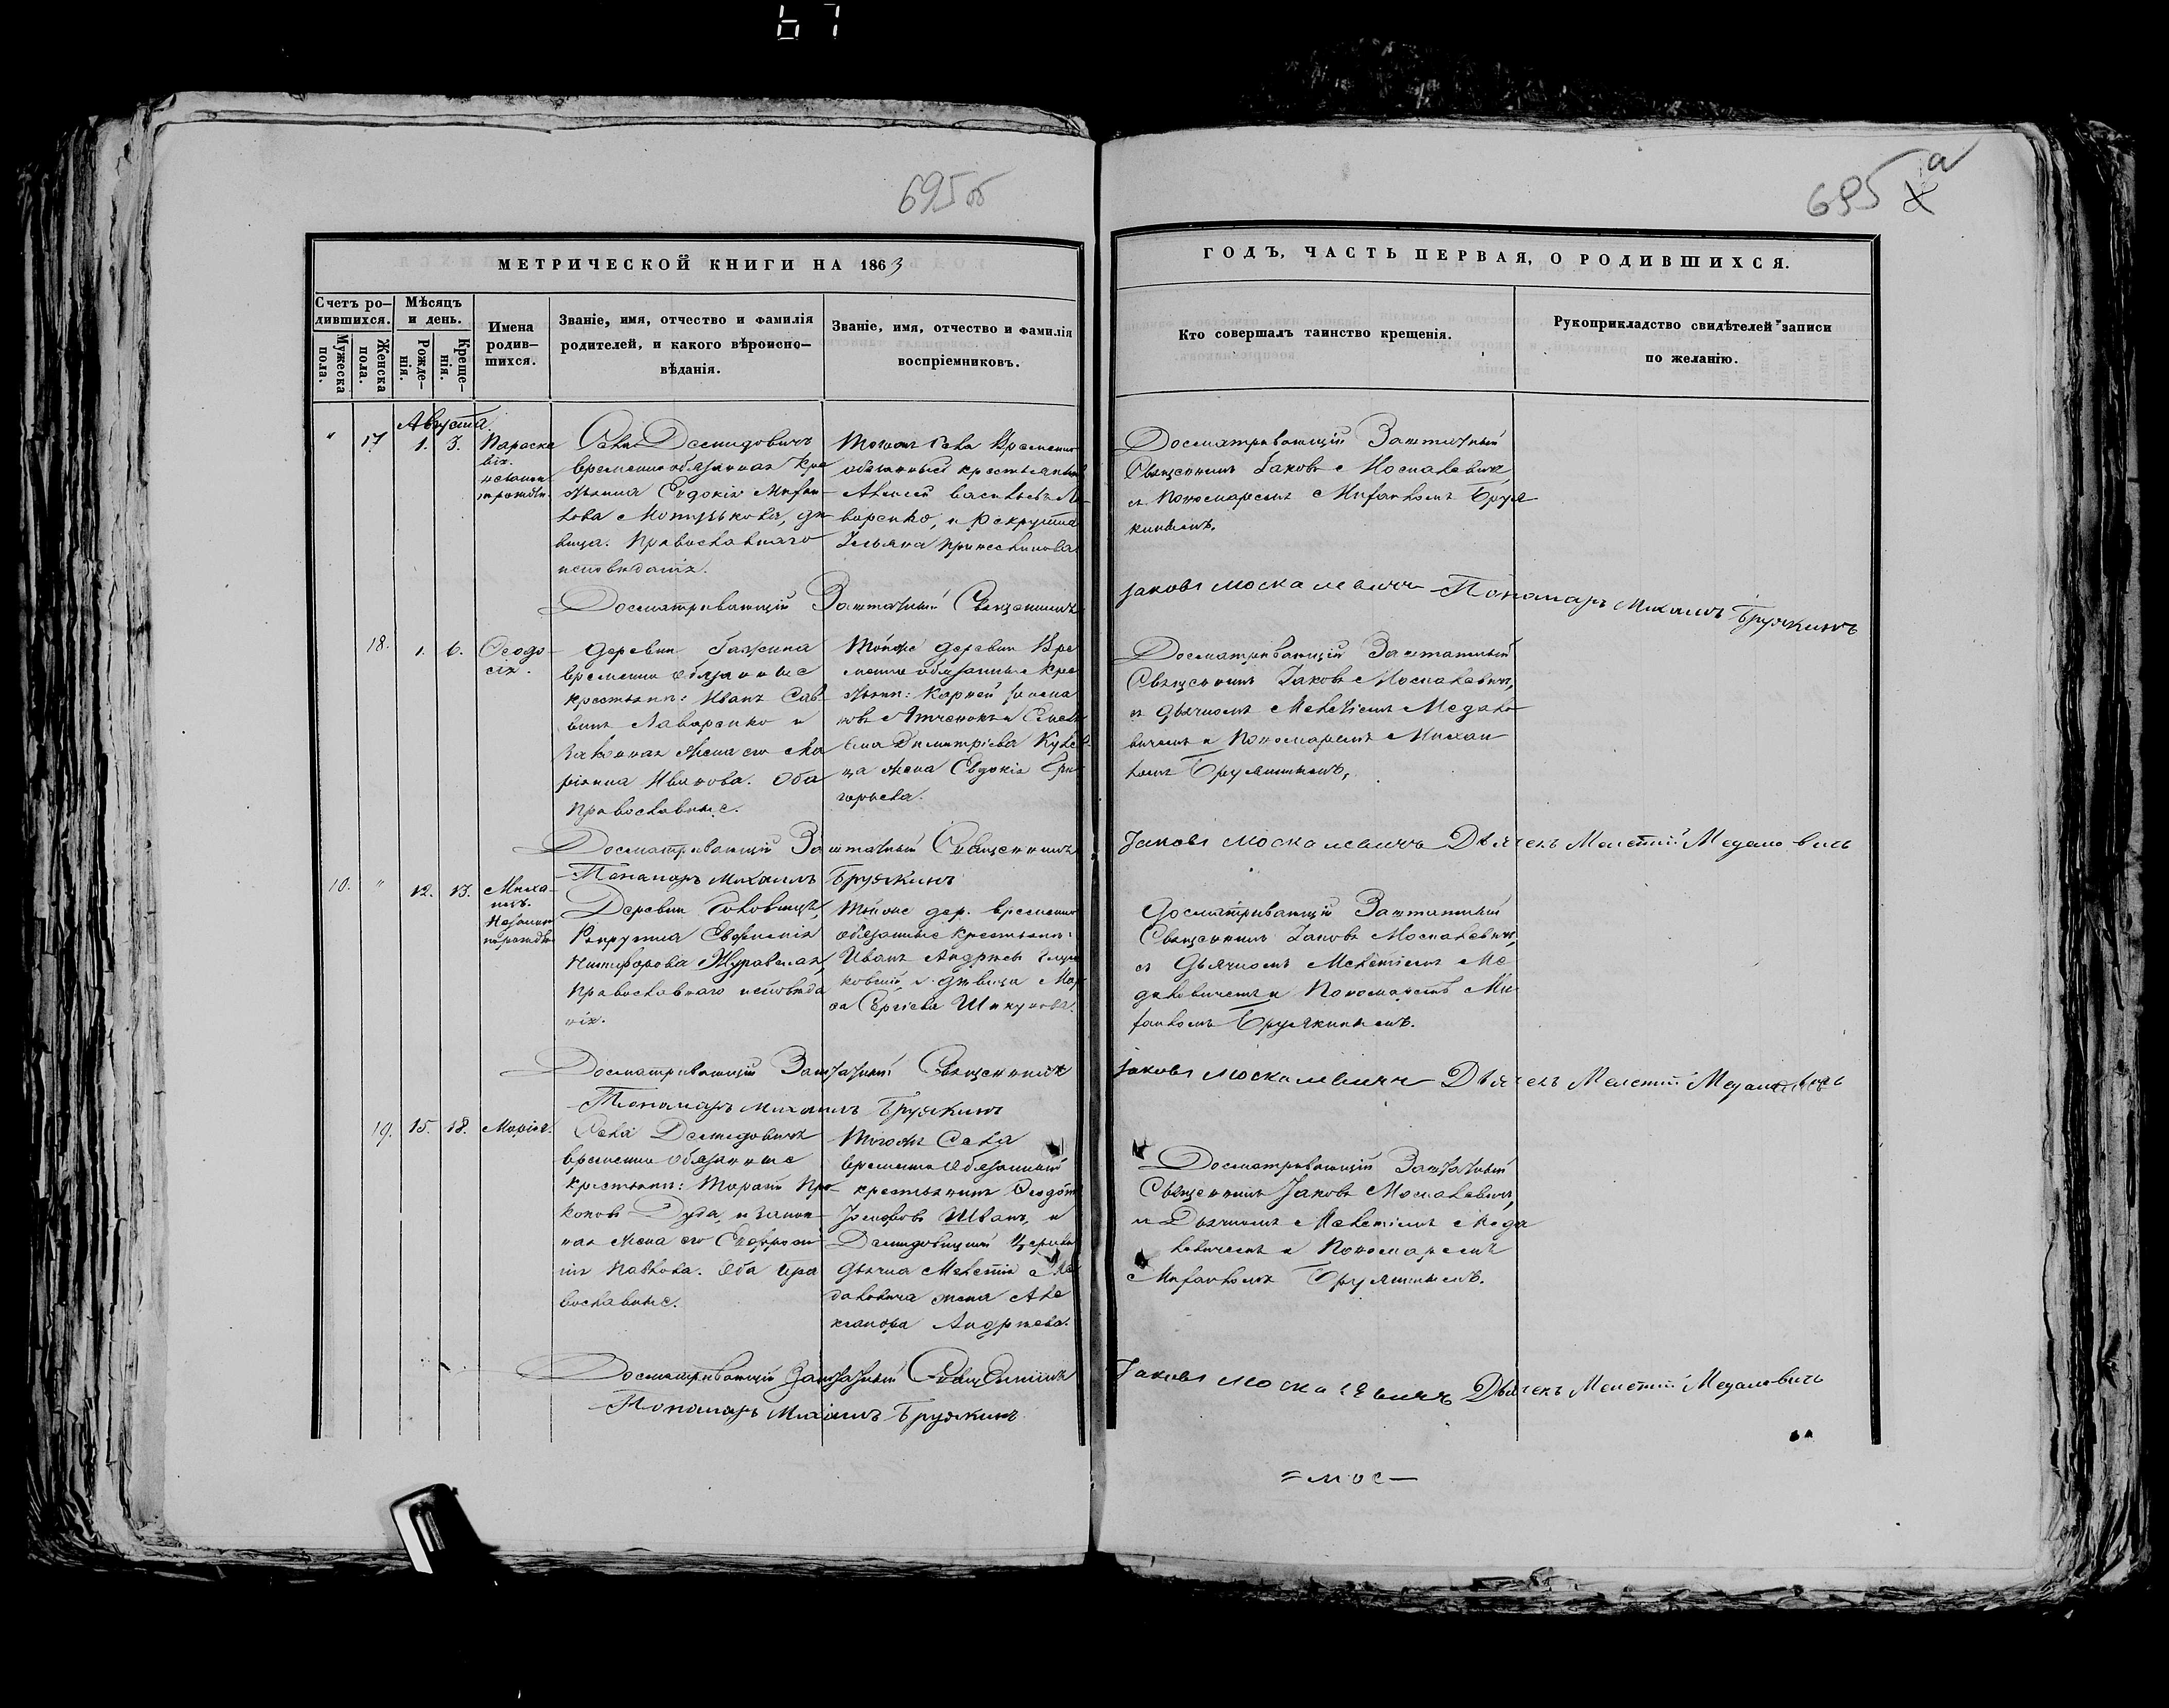 67
695об
695 а
МЕТРИЧЕСКОЙ КНИГИ НА 1863
ГОДЪ, ЧАСТЬ ПЕРВАЯ, О РОДИВШИХСЯ.
Счетъ ро-
дившихся.
Мужеска
пола.
Женска
пола.
Мѣсяцъ
и день.
Рожде-
нія.
Креще-
нія.
Имена
родив-
шихся.
Званіе, имя, отчество и фамилія
родителей, и какого вѣроиспо-
вѣданія.
Званіе, имя, отчество и фамилія
воспріемниковъ.
Кто совершалъ таинство крещенія.
Рукоприкладство свидѣтелей записи
по желанію.
Августа.
" 17 1. 3.
Параске
вія.
Села Демидовичъ
временно обязанная кре
стьянка Евдокія Михаи-
лова дѣ-
вица. Православнаго
исповѣданія.
Тогожъ села Временно
обязанный крестьянинъ
Алексей Васильевъ Ла-
варенко, и Рекрутка
Ульяна
Досматривающій Заштатный
Священникъ Іаковъ Москалевичъ,
съ Пономаремъ Михаиломъ Бруя
кинымъ.
Досматривающій Заштатный Священникъ
Іаковъ Москалевичъ Пономарь Михаилъ Бруякинъ
18. 1. 6.
Ѳеодо-
сія.
Деревни
временно обязанные
крестьяне: Иванъ Сав-
винъ Лаваренко и
законная жена его Ма
ріанна Иванова. Оба
Православные.
Тойже деревни Вре
менно обязанные кре
стьяне: Карней
Димитріева
жена Евдокія Гри-
горьева.
Досматривающій Заштатный
Священникъ Іаковъ Москалевичъ,
съ Дьячкомъ Мелетіемъ Медало
вичемъ и Пономаремъ Михаи
ломъ Бруякинымъ.
Досматривающій Заштатный Священникъ
Іаковъ Москалевичъ Дьячекъ Мелетій Медаловичъ
Пономарь Михаилъ Бруякинъ
10. " 12. 13.
Миха-
илъ.
Незакон
норожден
Деревни
Рекрутка Евфимія
Никифорова Журавская,
Православнаго исповѣда
нія.
Тойже дер. временно
обязанные крестьяне:
Иванъ Андреевъ
и дѣвица
Сергіева
Досматривающій Заштатный
Священникъ Іаковъ Москалевичъ,
съ Дьячкомъ Мелетіемъ Ме
даловичемъ и Пономаремъ Ми
хаиломъ Бруякинымъ.
Досматривающій Заштатный Священникъ
Іаковъ Москалевичъ Дьячекъ Мелетій Медаловичъ
Пономарь Михаилъ Бруякинъ
19. 15. 18.
Марія.
Села Демидовичъ
временно обязанные
крестьяне: Тарасъ Про-
коповъ Дуда, и закон-
ная жена его Евфроси
нія Павлова. Оба пра
вославные.
Тогожъ Села
временно обязанный
крестьянинъ Ѳеодотъ
Іосифовъ Швакъ, и
Демидовицкой Церкви
дьячка Мелетія Ме
даловича жена Але
ксандра Андреева.
Досматривающій Заштатный
Священникъ Іаковъ Москалевичъ,
съ Дьячкомъ Мелетіемъ Меда
ловичемъ и Пономаремъ
Михаиломъ Бруякинымъ.
Досматривающій Заштатный Священникъ
Іаковъ Москалевичъ Дьячекъ Мелетій Медаловичъ
Пономарь Михаилъ Бруякинъ